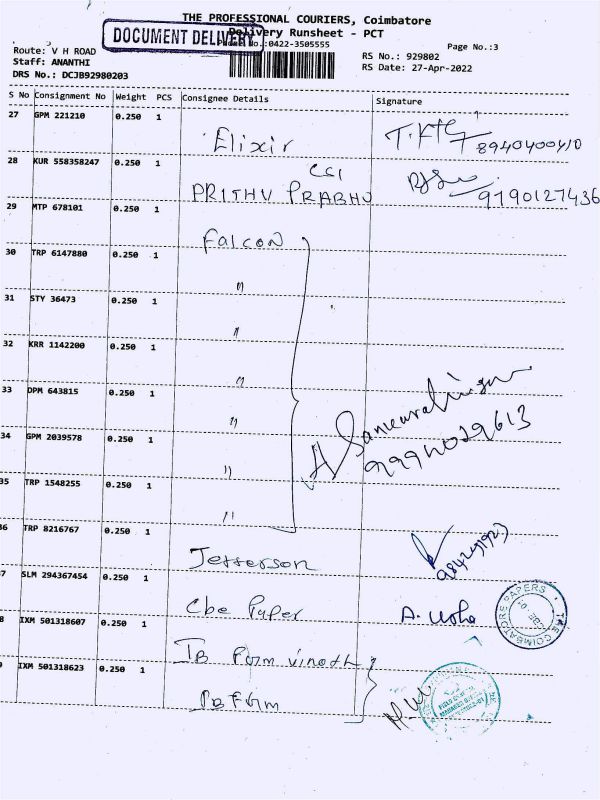 THE PROFESSIONAL COURIERS, Coimbatore
DOCUMENT DELIVERY
Delivery Runsheet - PCT
Phone No.:0422-3505555
Page No.:3
Route: V H ROAD
RS No.: 929802
Staff: ANANTHI
RS Date: 27-Apr-2022
DRS No.: DCJB92980203
S No Consignment No Weight PCS Consignee Details Signature
27 GPM 221210 0.250 1
Elixir
8940400410
28 KUR 558358247 0.250 1
PRITHV PRABHU
9790127436
29 MTP 678101 0.250 1
Falcon
30 TRP 6147880 0.250 1
"
31 STY 36473 0.250 1
"
32 KRR 1142200 0.250 1
"
33 DPM 643815 0.250 1
"
34 GPM 2039578 0.250 1
"
35 TRP 1548255 0.250 1
"
36 TRP 8216767 0.250 1
Jefferson
7 SLM 294367454 0.250 1
Cbe Paper
A. Usha
THE COIMBATORE PAPERS
8 IXM 501318607 0.250 1
IB Form Vinoth
9 IXM 501318623 0.250 1